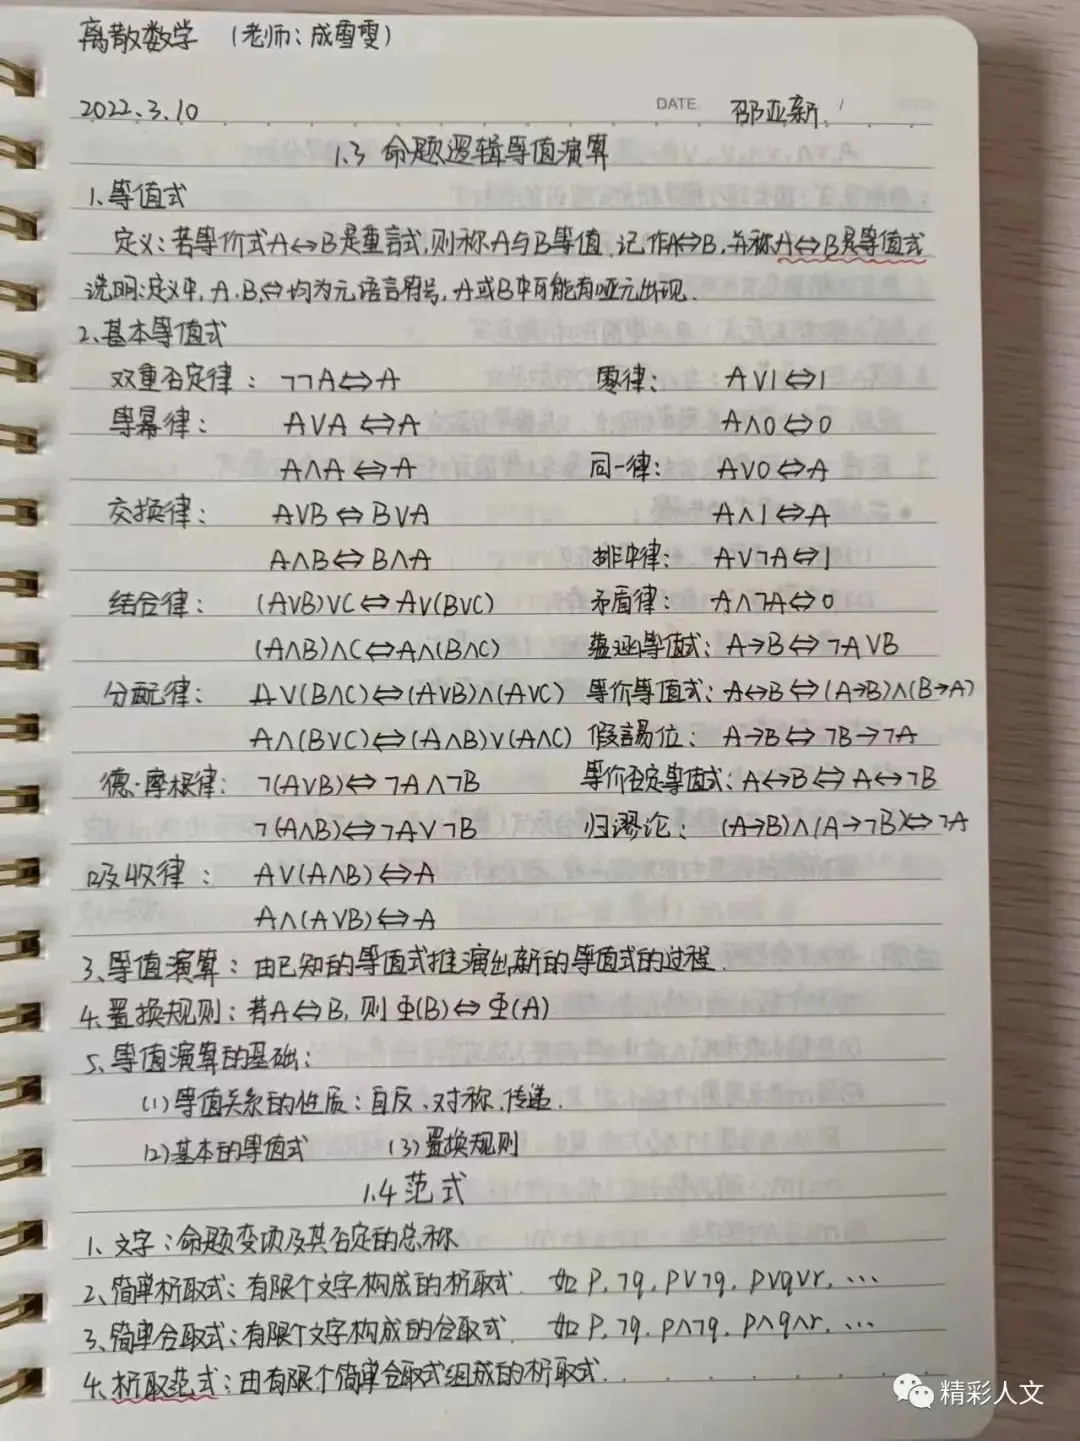 离散数学 (老师:成雪雯)
2022.3.10 DATE 邵亚新
1.3 命题逻辑等值演算
1、等值式
定义:若等价式A↔B是重言式,则称A与B等值,记作A⇔B,并称A⇔B是等值式
说明:定义中,A,B,⇔均为元语言符号,A或B中可能有哑元出现.
2、基本等值式
双重否定律: ¬¬A⇔A 零律: A∨1⇔1
等幂律: A∨A⇔A A∧0⇔0
A∧A⇔A 同一律: A∨0⇔A
交换律: A∨B⇔B∨A A∧1⇔A
A∧B⇔B∧A 排中律: A∨¬A⇔1
结合律: (A∨B)∨C⇔A∨(B∨C) 矛盾律: A∧¬A⇔0
(A∧B)∧C⇔A∧(B∧C) 蕴涵等值式: A→B⇔¬A∨B
分配律: A∨(B∧C)⇔(A∨B)∧(A∨C) 等价等值式: A↔B⇔(A→B)∧(B→A)
A∧(B∨C)⇔(A∧B)∨(A∧C) 假言易位: A→B⇔¬B→¬A
德·摩根律: ¬(A∨B)⇔¬A∧¬B 等价否定等值式: A↔B⇔A↔¬B
¬(A∧B)⇔¬A∨¬B 归谬论: (A→B)∧(A→¬B)⇔¬A
吸收律: A∨(A∧B)⇔A
A∧(A∨B)⇔A
3、等值演算:由已知的等值式推演出新的等值式的过程.
4、置换规则:若A⇔B,则Φ(B)⇔Φ(A)
5、等值演算的基础:
(1)等值关系的性质:自反、对称、传递.
(2)基本的等值式 (3)置换规则
1.4 范式
1、文字:命题变项及其否定的总称
2、简单析取式:有限个文字构成的析取式. 如p,¬q,p∨¬q,p∨q∨r,…
3、简单合取式:有限个文字构成的合取式. 如p,¬q,p∧¬q,p∧q∧r,…
4、析取范式:由有限个简单合取式组成的析取式.
精彩人文